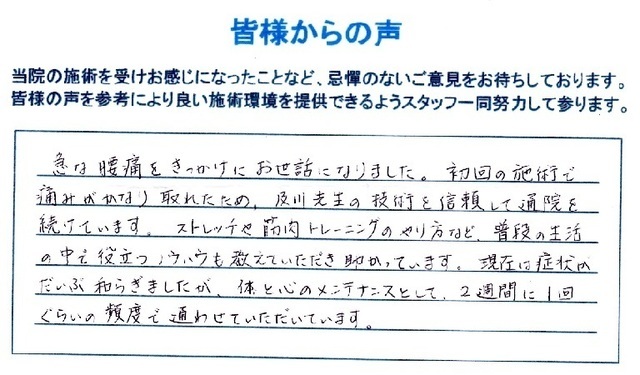 皆様からの声
当院の施術を受けお感じになったことなど、忌憚のないご意見をお待ちしております。
皆様の声を参考により良い施術環境を提供できるようスタッフ一同努力して参ります。
急な腰痛をきっかけにお世話になりました。初回の施術で
痛みがかなり取れたため、及川先生の技術を信頼して通院を
続けています。ストレッチや筋肉トレーニングのやり方など、普段の生活
の中で役立つノウハウも教えていただき助かっています。現在は症状が
だいぶ和らぎましたが、体と心のメンテナンスとして、2週間に1回
ぐらいの頻度で通わせていただいています。